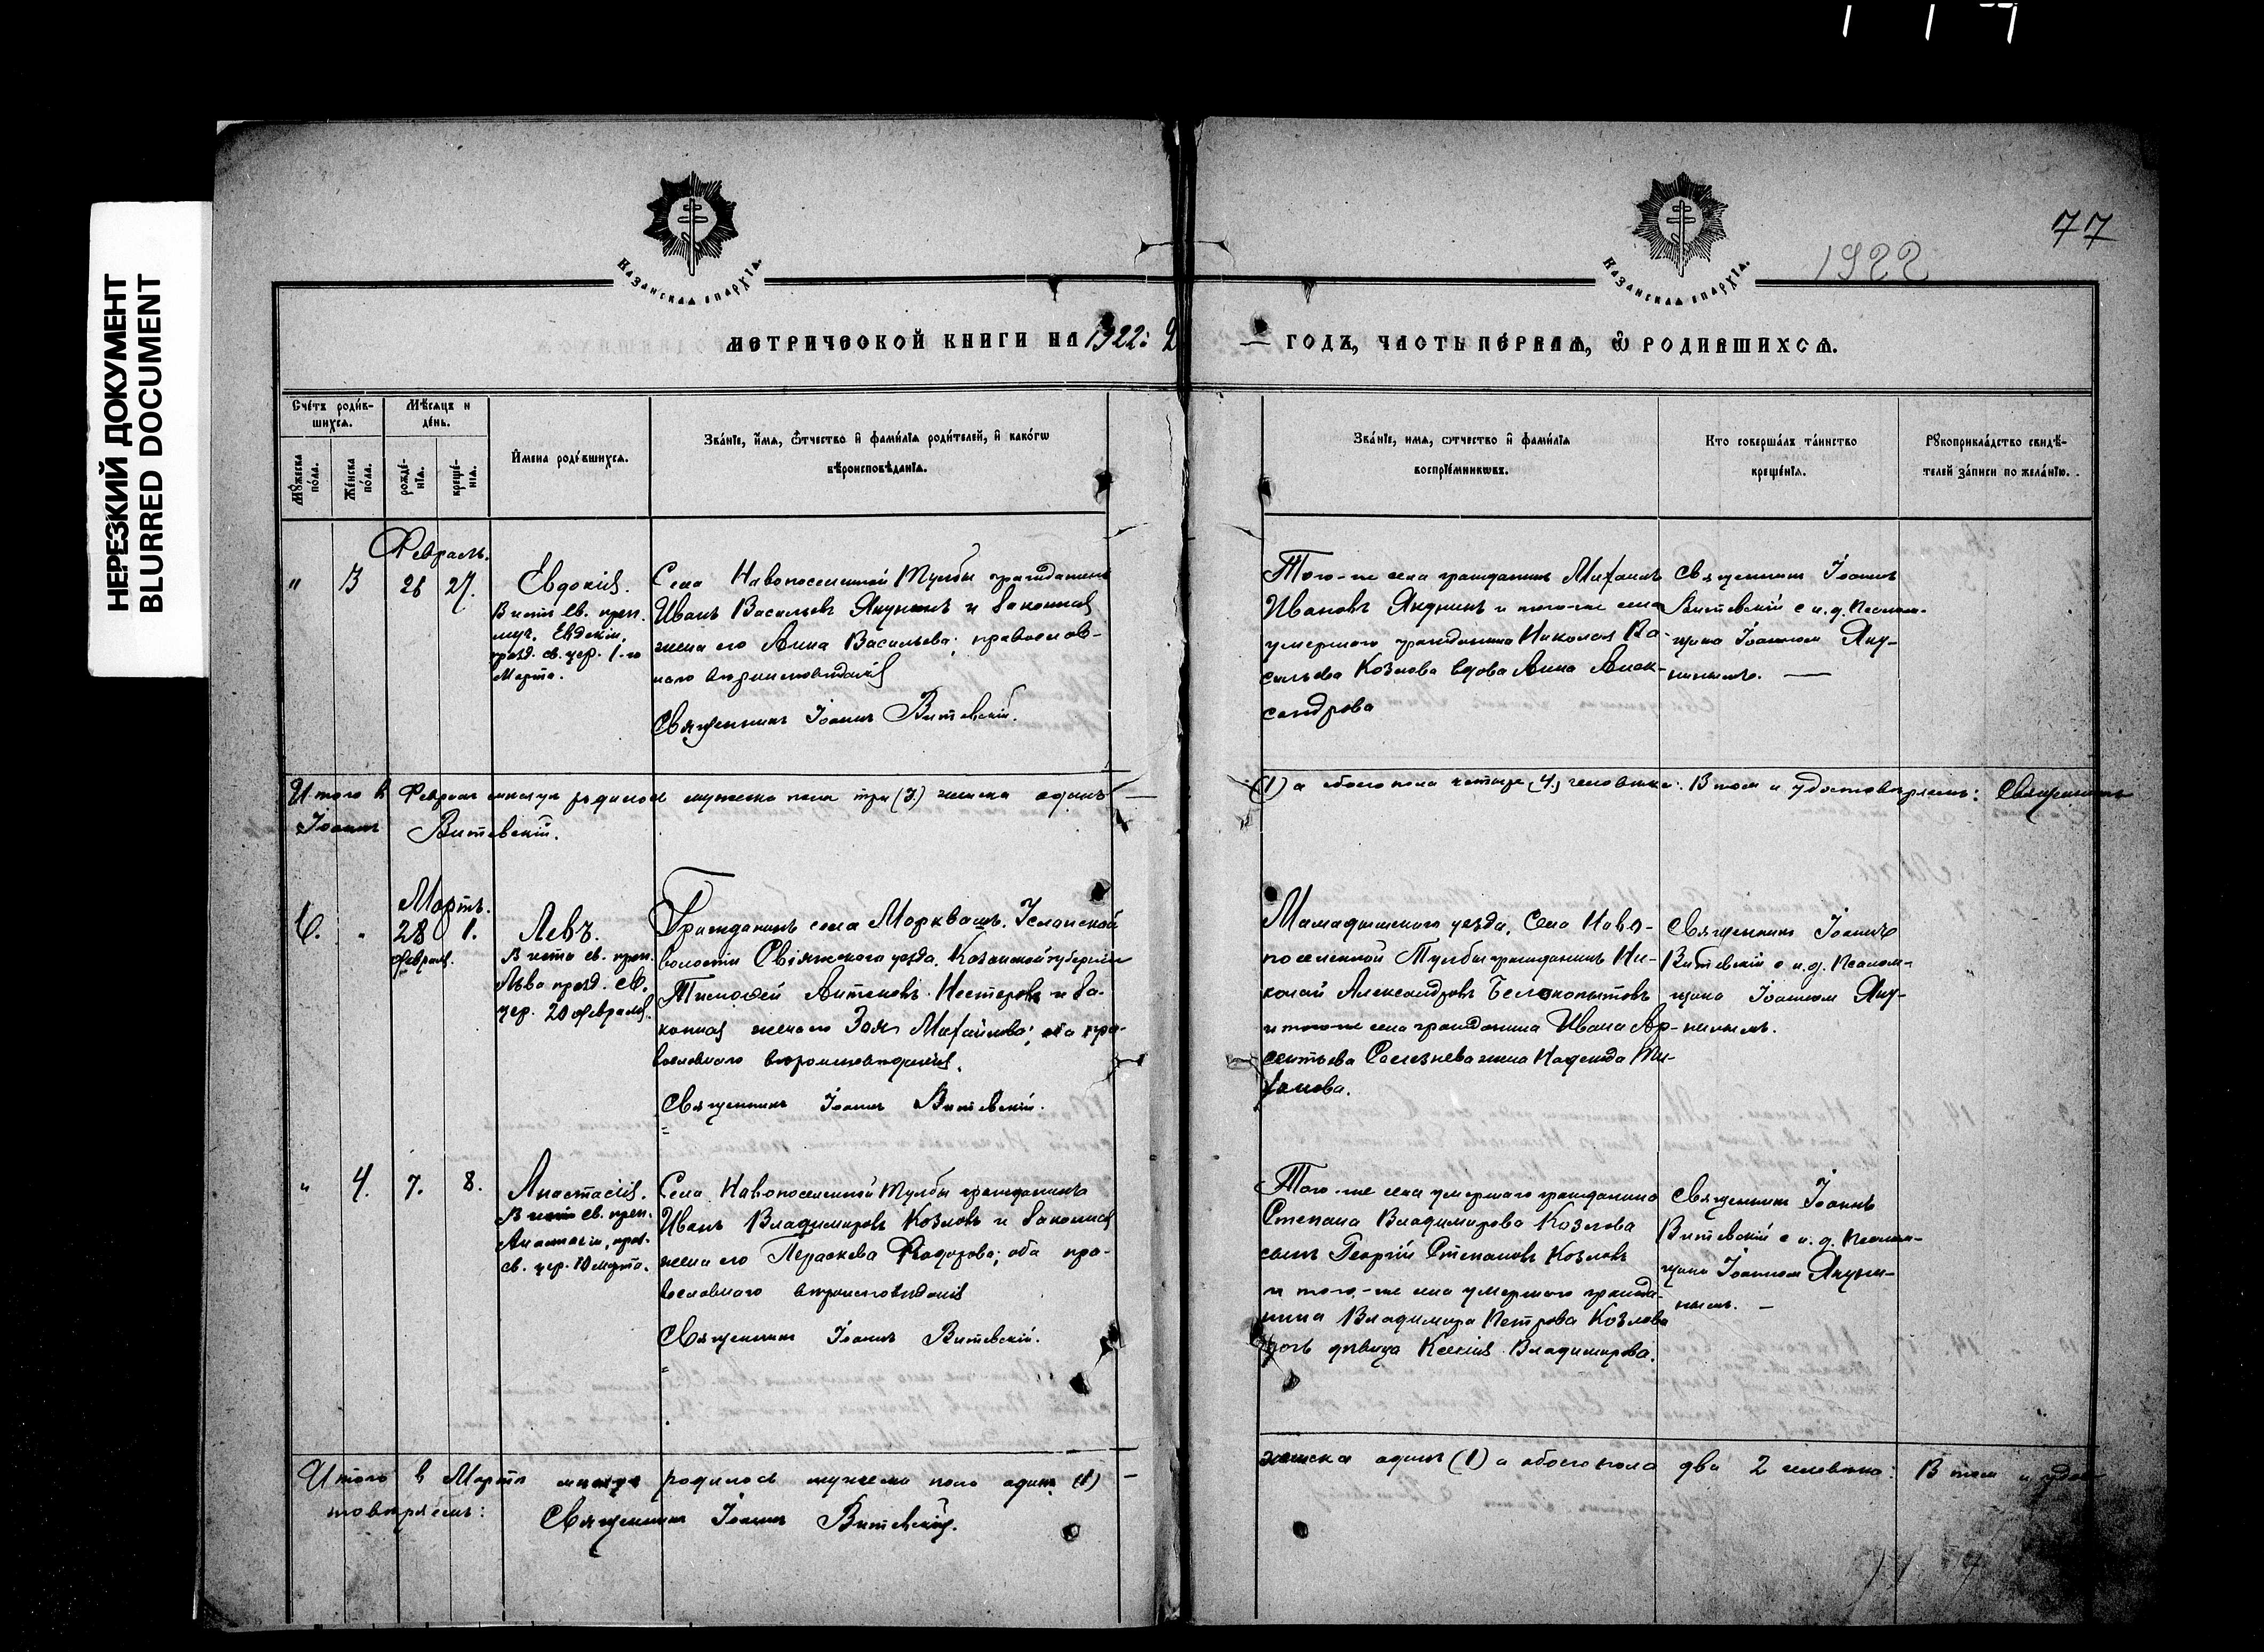 НЕРЕЗКИЙ ДОКУМЕНТ
BLURRED DOCUMENT
Казанская епархїя.
Казанская епархїя.
77
1922
МЕТРИЧЕСКОЙ КНИГИ НА 1922: 2
— ГОДЪ, ЧАСТЬ ПЕРВАЯ, Ѿ РОДИВШИХСЯ.
Счетъ родив-
шихся.
Мѣсяцъ и
день.
Имена родившихся.
Званїе, имя, отчество и фамилїя родителей, и какогѡ
вѣроисповѣданїя.
Мужеска
пола.
Женска
пола.
рожде-
нїя.
креще-
нїя.
Званїе, имя, отчество и фамилїя
воспрїемникѡвъ.
Кто совершалъ таинство
крещенїя.
Рукоприкладство свидѣ-
телей записи по желанїю.
Февраль.
" 3 26 27.
Евдокія.
В честь св. преп.
муч. Евдокіи,
празд. св. цер. 1-го
Марта.
Села Новопоселенной Тулбы гражданинъ
Иванъ Васильевъ Якунинъ и законная
жена его Анна Васильева; православ-
наго вѣроисповѣданія
Священникъ Іоаннъ Витевскій.
Того-же села гражданинъ Михаилъ
Ивановъ Якунинъ и того-же села
умершаго гражданина Николая Ва-
сильева Козлова вдова Анна Алек-
сандрова
Священникъ Іоаннъ
Витевскій с и. д. Псалом-
щика Іоанном Яку-
нинымъ. —
Итого в Феврале месяце родилось мужеска пола три (3.) женска одинъ —
(1) а обоего пола четыре (4.) человека: В том и удостоверяем: Священникъ
Іоаннъ Витевскій.
Мартъ.
6. " 28 1.
февраля.
Левъ.
В честь св. преп.
Льва празд. св.
цер. 20 февраля.
Гражданинъ села Моркваш. Услонской
волости Свіяжскаго уезда, Казанской губерніи
Тимофей Антоновъ Нестеровъ и за-
конная жена его Зоя Михайлова; оба пра-
вославнаго вѣроисповѣданія.
Священникъ Іоаннъ Витевскій.
Мамадышскаго уезда, Села Ново-
поселенной Тулбы гражданинъ Ни-
колай Александровъ Белокопытовъ
и того-же села гражданина Ивана Ар-
сентьева Селезнева жена Надежда Ти-
Священникъ Іоаннъ
Витевскій с и. д. Псалом-
щика Іоанном Яку-
нинымъ.
" 4. 7. 8.
Анастасія.
В честь св. преп.
Анастасіи, праз.
св. цер. 10 марта.
Села Новопоселенной Тулбы гражданинъ
Иванъ Владимировъ Козловъ и законная
жена его Параскева Федорова; оба пра-
вославнаго вѣроисповѣданія
Священникъ Іоаннъ Витевскій.
Того-же села умершаго гражданина
Степана Владимирова Козлова
сынъ Георгій Степановъ Козловъ
и того-же села умершаго гражда-
нина Владимира Петрова Козлова
дочь девица Ксенія Владимирова.
Священникъ Іоаннъ
Витевскій с и. д. Псалом-
щика Іоанном Якуни-
нымъ. —
Итого в Марте месяце родилось мужеска пола один (1) —
женска один (1) а обоего пола два 2 человека: В том и удос-
товеряем: Священникъ Іоаннъ Витевскій.